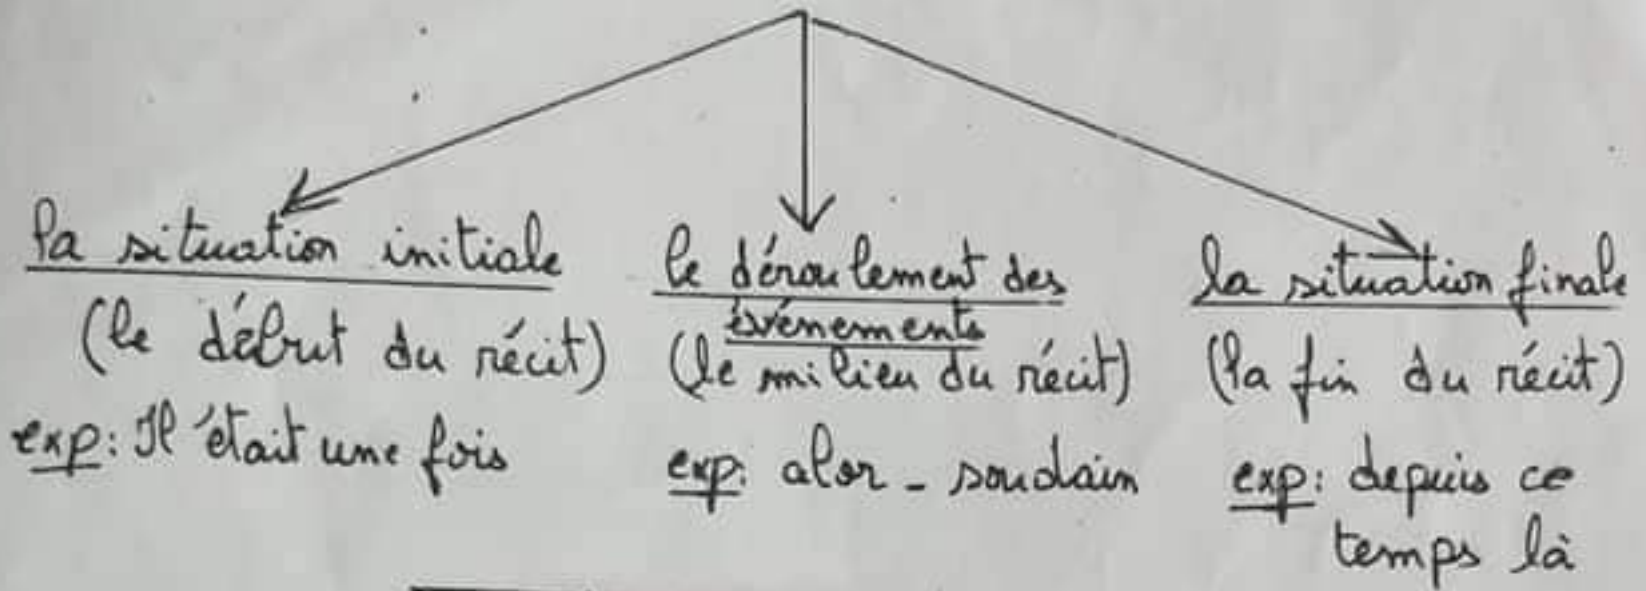 la situation initiale
(le début du récit)
exp: Il était une fois
le déroulement des
événements
(le milieu du récit)
exp: alor - soudain
la situation finale
(la fin du récit)
exp: depuis ce
temps là